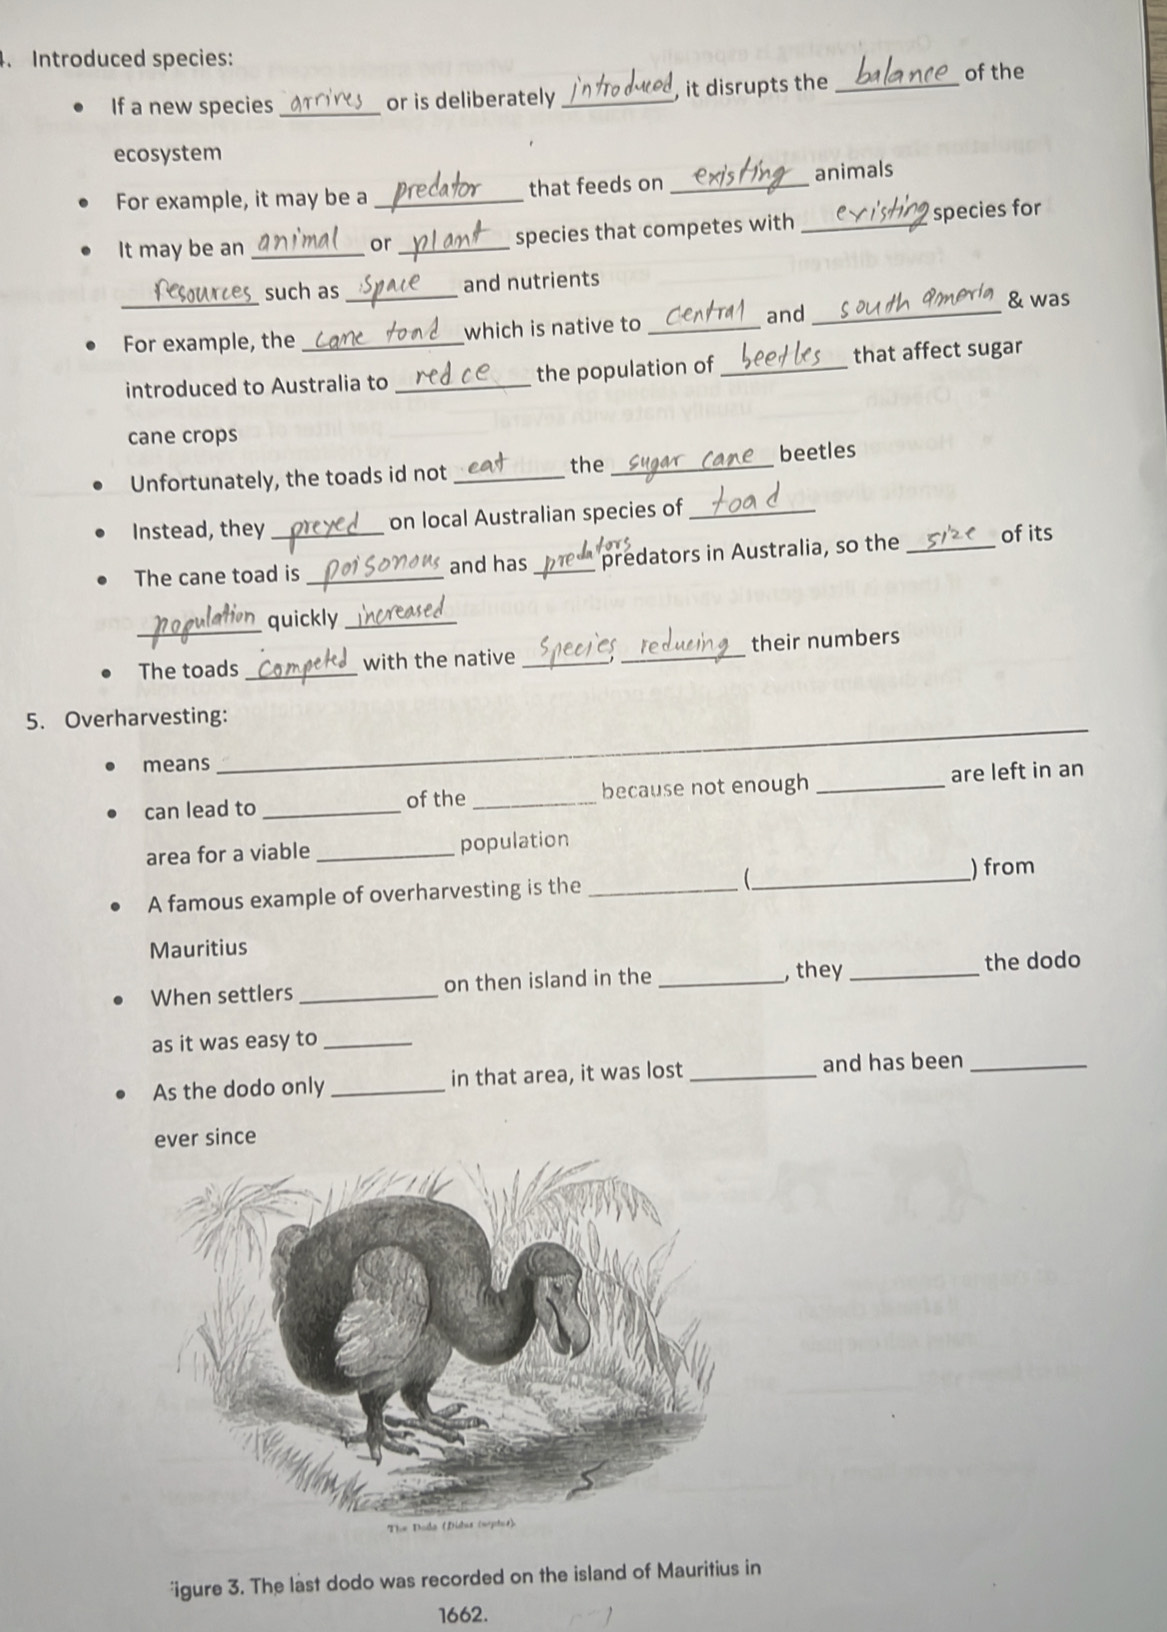 4. Introduced species:
• If a new species arrives or is deliberately introduced, it disrupts the balance of the
ecosystem
• For example, it may be a predator that feeds on existing animals
• It may be an animal or plant species that competes with existing species for
resources such as space and nutrients
• For example, the cane toad which is native to central and south ameria & was
introduced to Australia to redce the population of beetles that affect sugar
cane crops
• Unfortunately, the toads id not eat the sugar cane beetles
• Instead, they preyed on local Australian species of toad
• The cane toad is poisonous and has predators predators in Australia, so the size of its
population quickly increased
• The toads competed with the native species, reducing their numbers
5. Overharvesting:
• means ____
• can lead to ____ of the ____ because not enough ____ are left in an
area for a viable ____ population
• A famous example of overharvesting is the ____ (____) from
Mauritius
• When settlers ____ on then island in the ____, they ____ the dodo
as it was easy to ____
• As the dodo only ____ in that area, it was lost ____ and has been ____
ever since
The Dodo (Didus ineptus).
igure 3. The last dodo was recorded on the island of Mauritius in
1662.